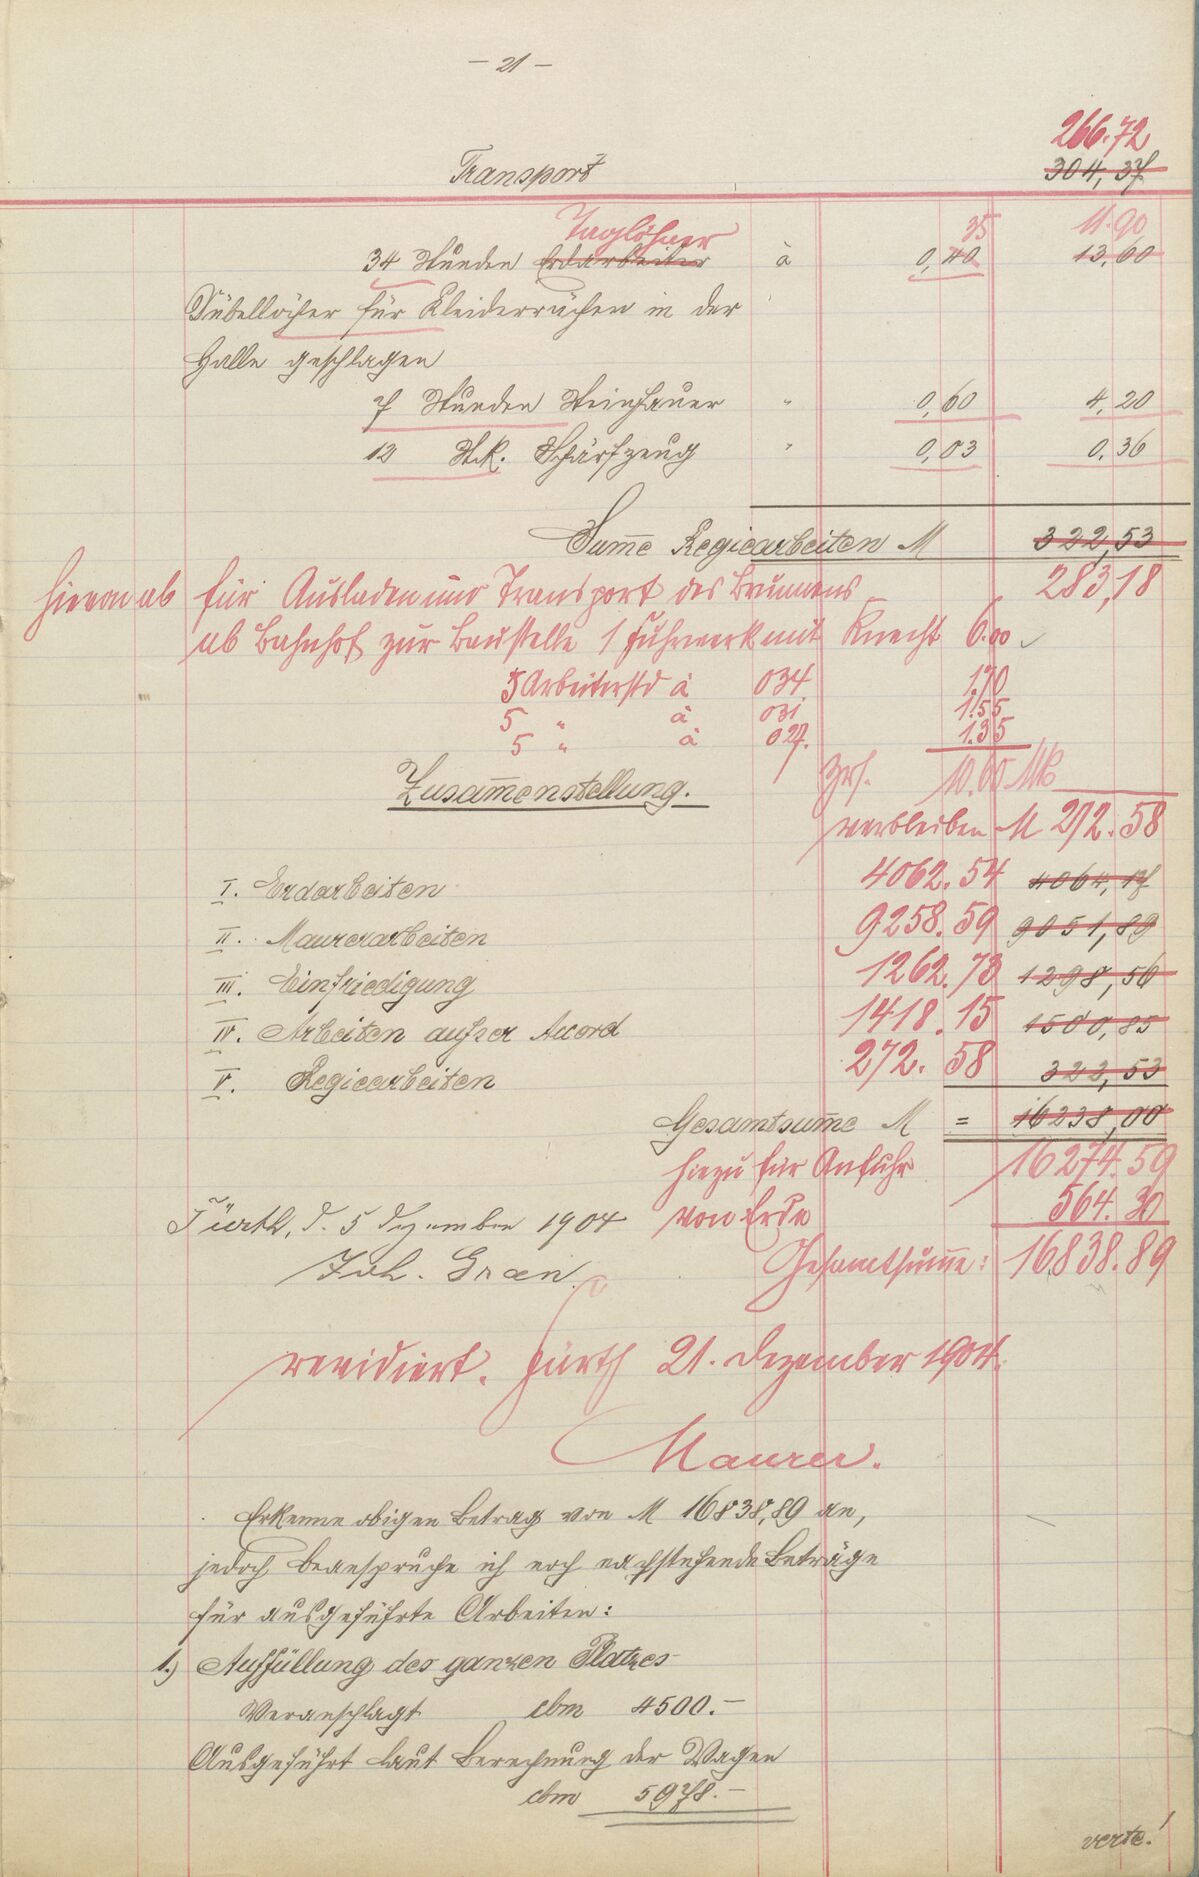 - 21 -
266.72
Transport 304,37
Taglöhner 35 11.90
34 Stunden Erdarbeiter à 0,40 13,60
Dübellöcher für Kleiderrächen in der
Halle geschlagen
7 Stunden Steinhauer " 0,60 4,20
12 Stk. Schärfzeug " 0,03 0.36
Sum̅e Regiearbeiten M 322,53
283,18
hievon ab für Ausladen und Transport des Brunnens
ab Bahnhof zur Baustelle 1 Fuhrwerk mit Knecht 6.00
5 Arbeiterstd à 034 1.70
5 " à 031. 1.55
5 " à 027. 1.35
Zusam̅enstellung. 10.60 Mk
verbleiben M 272.58
I. Erdarbeiten 4062.54 4064,17
II. Maurerarbeiten 9258.59 9051,89
III. Einfriedigung 1262.73 1298,56
IV. Arbeiten außer Accord 1418.15 1500,85
V. Regiearbeiten 272.58 322,53
Gesamtsum̅e M = 16238,00
hiezu für Anfuhr 16274.59
von Erde 564.30
Fürth, d. 5 Dezember 1904
Gesamtsum̅e: 16838.89
Joh. Gran
revidiert. Fürth 21. Dezember 1904.
Maurer.
Erkenne obigen Betrag von M 16838,89 an,
jedoch beanspruche ich noch nachstehende Beträge
für ausgeführte Arbeiten:
1.) Auffüllung des ganzen Platzes
Veranschlagt cbm 4500.-
Ausgeführt laut Berechnung der Wagen
cbm 5978.-
verte!